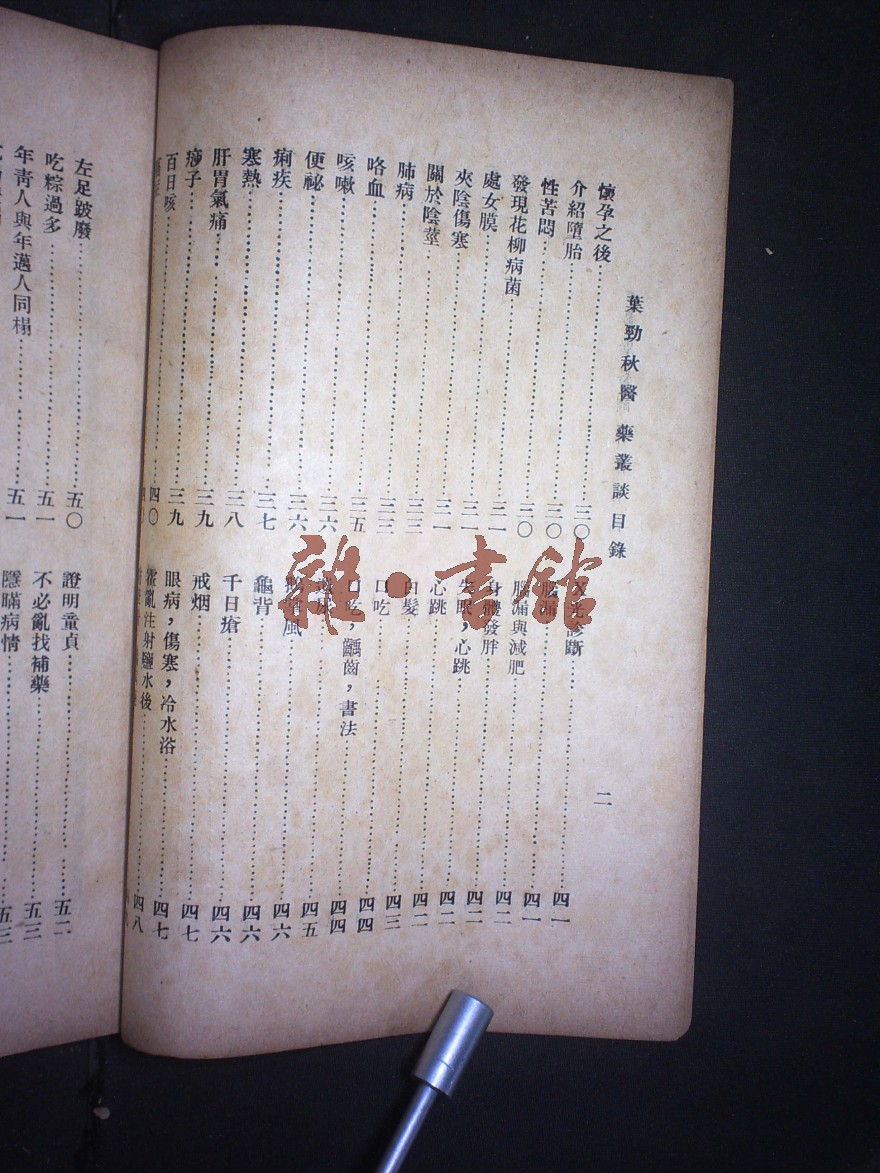 葉勁秋醫藥叢談目錄
二
懷孕之後……三〇
介紹墮胎……三〇
性苦悶……三〇
發現花柳病菌……三一
處女膜……三一
夾陰傷寒……三一
關於陰莖……三三
肺病……三三
咯血……三五
咳嗽……三六
便祕……三六
痢疾……三七
寒熱……三八
肝胃氣痛……三九
痧子……三九
百日咳……四〇
光診斷……四一
腦漏……四一
腦漏與減肥……四二
身體發胖……四二
失眠，心跳……四二
心跳……四二
白髮……四三
口吃……四四
口吃，齲齒，書法……四四
遺尿……四五
鵝掌風……四六
龜背……四六
千日瘡……四六
戒烟……四七
眼病，傷寒，冷水浴……四七
霍亂注射鹽水後……四八
左足跛廢……五〇
吃粽過多……五一
年靑人與年邁人同榻……五一
證明童貞……五二
不必亂找補藥……五三
隱瞞病情……五三
雜·書館